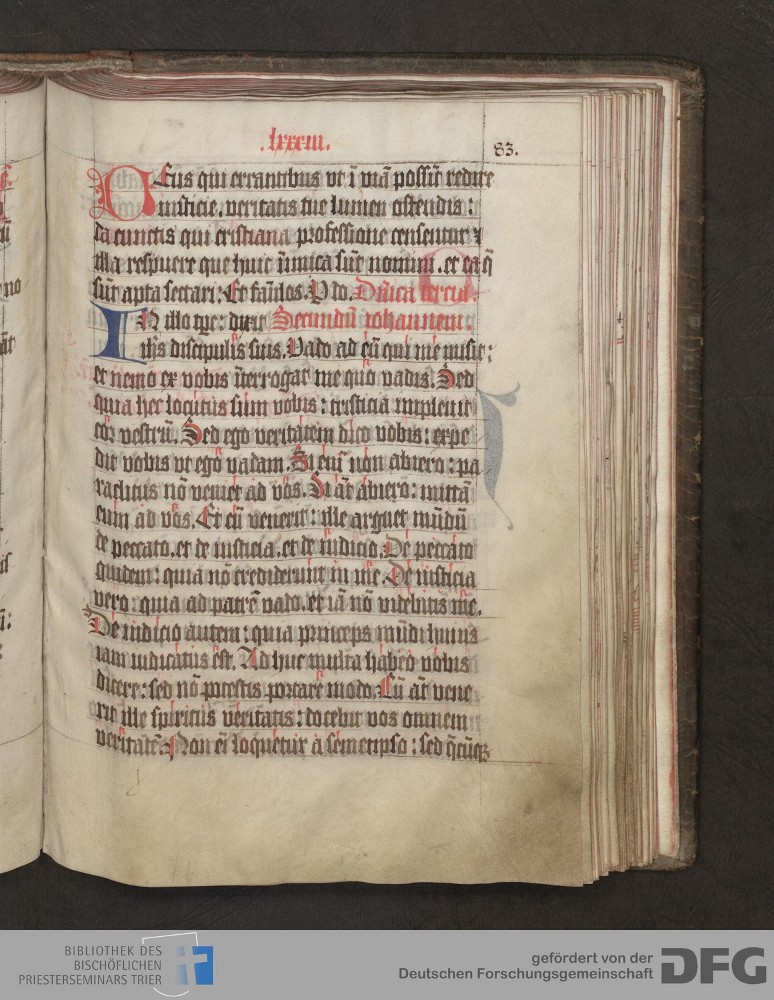 .lxxxiii.
83.
Deus q̄ui errantibus vt ī viā possīt redire
iusticie. veritatis tue lumen ostendis:
da cunctis qui cristiana professione censentur ⁊
illa respuere que huic īimica sūt nomini. et ea q̄
sūt apta sectari: Et fāulos. P do. Dn̄ica tercia.
In illo tp̄r: dixit Secundū iohannem:
ih̄s discipulis suis. Vado ad eū qui me misit:
et nemo ex vobis īterrogat me quo vadis. Sed
quia hec locutus sum vobis: tristicia impleuit
cor vestrū. Sed ego veritatem dico vobis: expe
dit vobis vt ego vadam. Si eni non abiero: pa
raclitus nō veniet ad vos. Si āt abiero: mittā
eum ad vos. Et cū venerit: ille arguet mūdū
de peccato. et de iusticia. et de iudicio. De peccato
quidem: quia nō crediderunt in me. De iusticia
vero: quia ad patrē vado. et iā nō videbitis me.
De iudicio autem: quia princeps mūdi huius
iam iudicatus est. Ad huc multa habeo vobis
dicere: sed nō potestis portare modo. Cū āt vene
rit ille spiritus veritatis: docebit vos omnem
veritatē. Non ei loquetur a semetipso: sed q̄cūqꝫ
BIBLIOTHEK DES
BISCHÖFLICHEN
PRIESTERSEMINARS TRIER
gefördert von der
Deutschen Forschungsgemeinschaft DFG